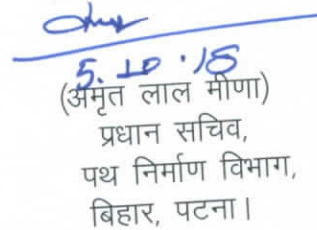 5.10.18
(अमृत लाल मीणा)
प्रधान सचिव,
पथ निर्माण विभाग,
बिहार, पटना।